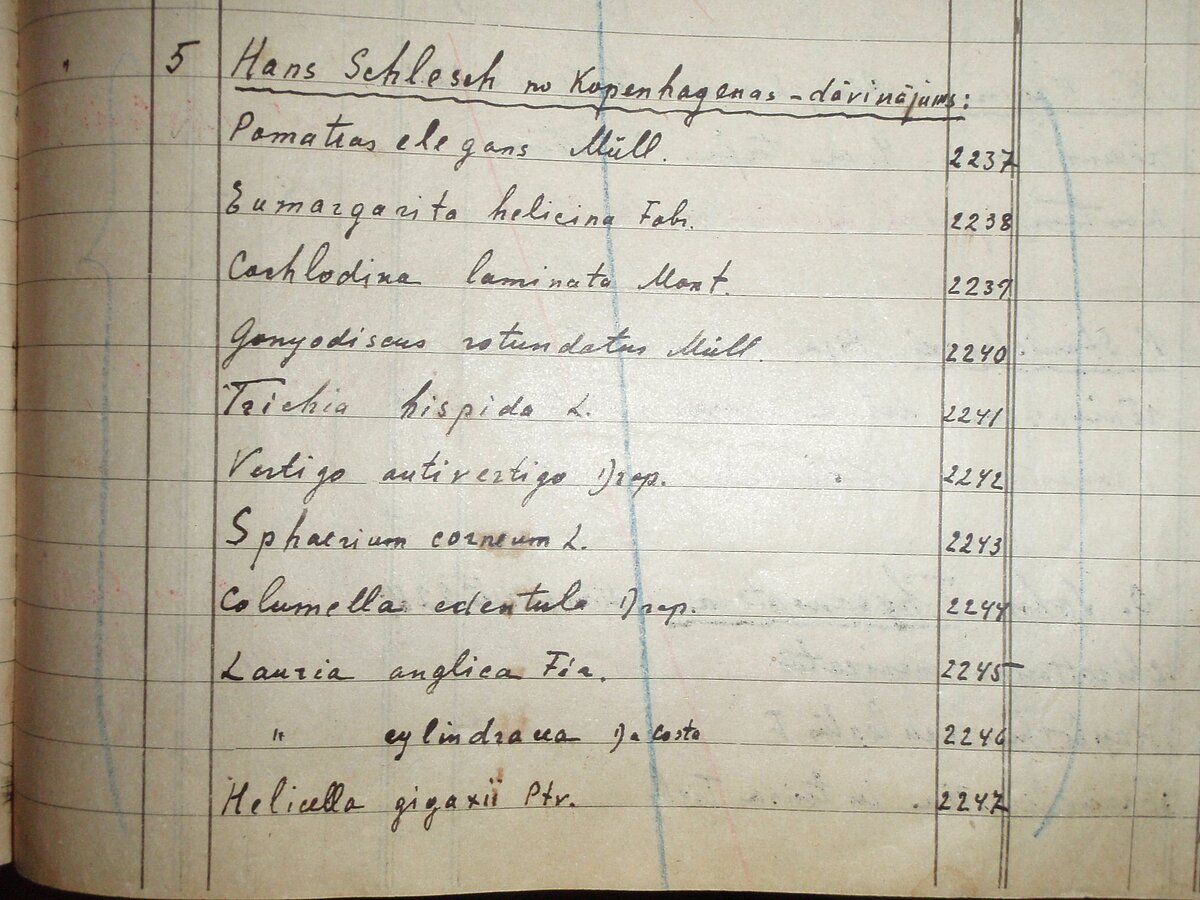 5 Hans Schlesch no Kopenhagenas – dāvinājums:
Pomatias elegans Müll. 2237
Eumargarita helicina Fabr. 2238
Cochlodina laminata Mont. 2239
Gonyodiscus rotundatus Müll. 2240
Trichia hispida L. 2241
Vertigo antivertigo Drap. 2242
Sphaerium corneum L. 2243
Columella edentula Drap. 2244
Lauria anglica Fér. 2245
" cylindracea Da Costa 2246
Helicella gigaxii Pfr. 2247